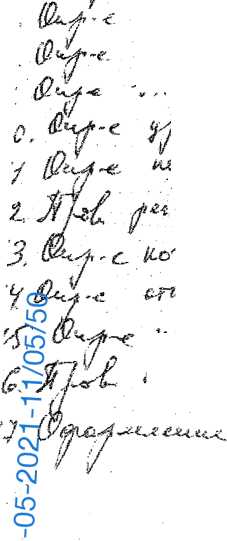 Опр-е
Опр-е
Опр-е "...
0. Опр-е
1 Опр-е
2. Пров. рег
3. Опр-е по
4 Опр-е отк
5. Опр-е "
6. Пров.
7. Оформление
-05-2021-11/05/50